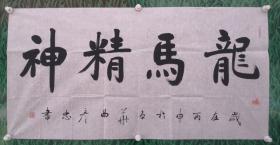 龍馬精神
歲在丙申於華曲彦忠書